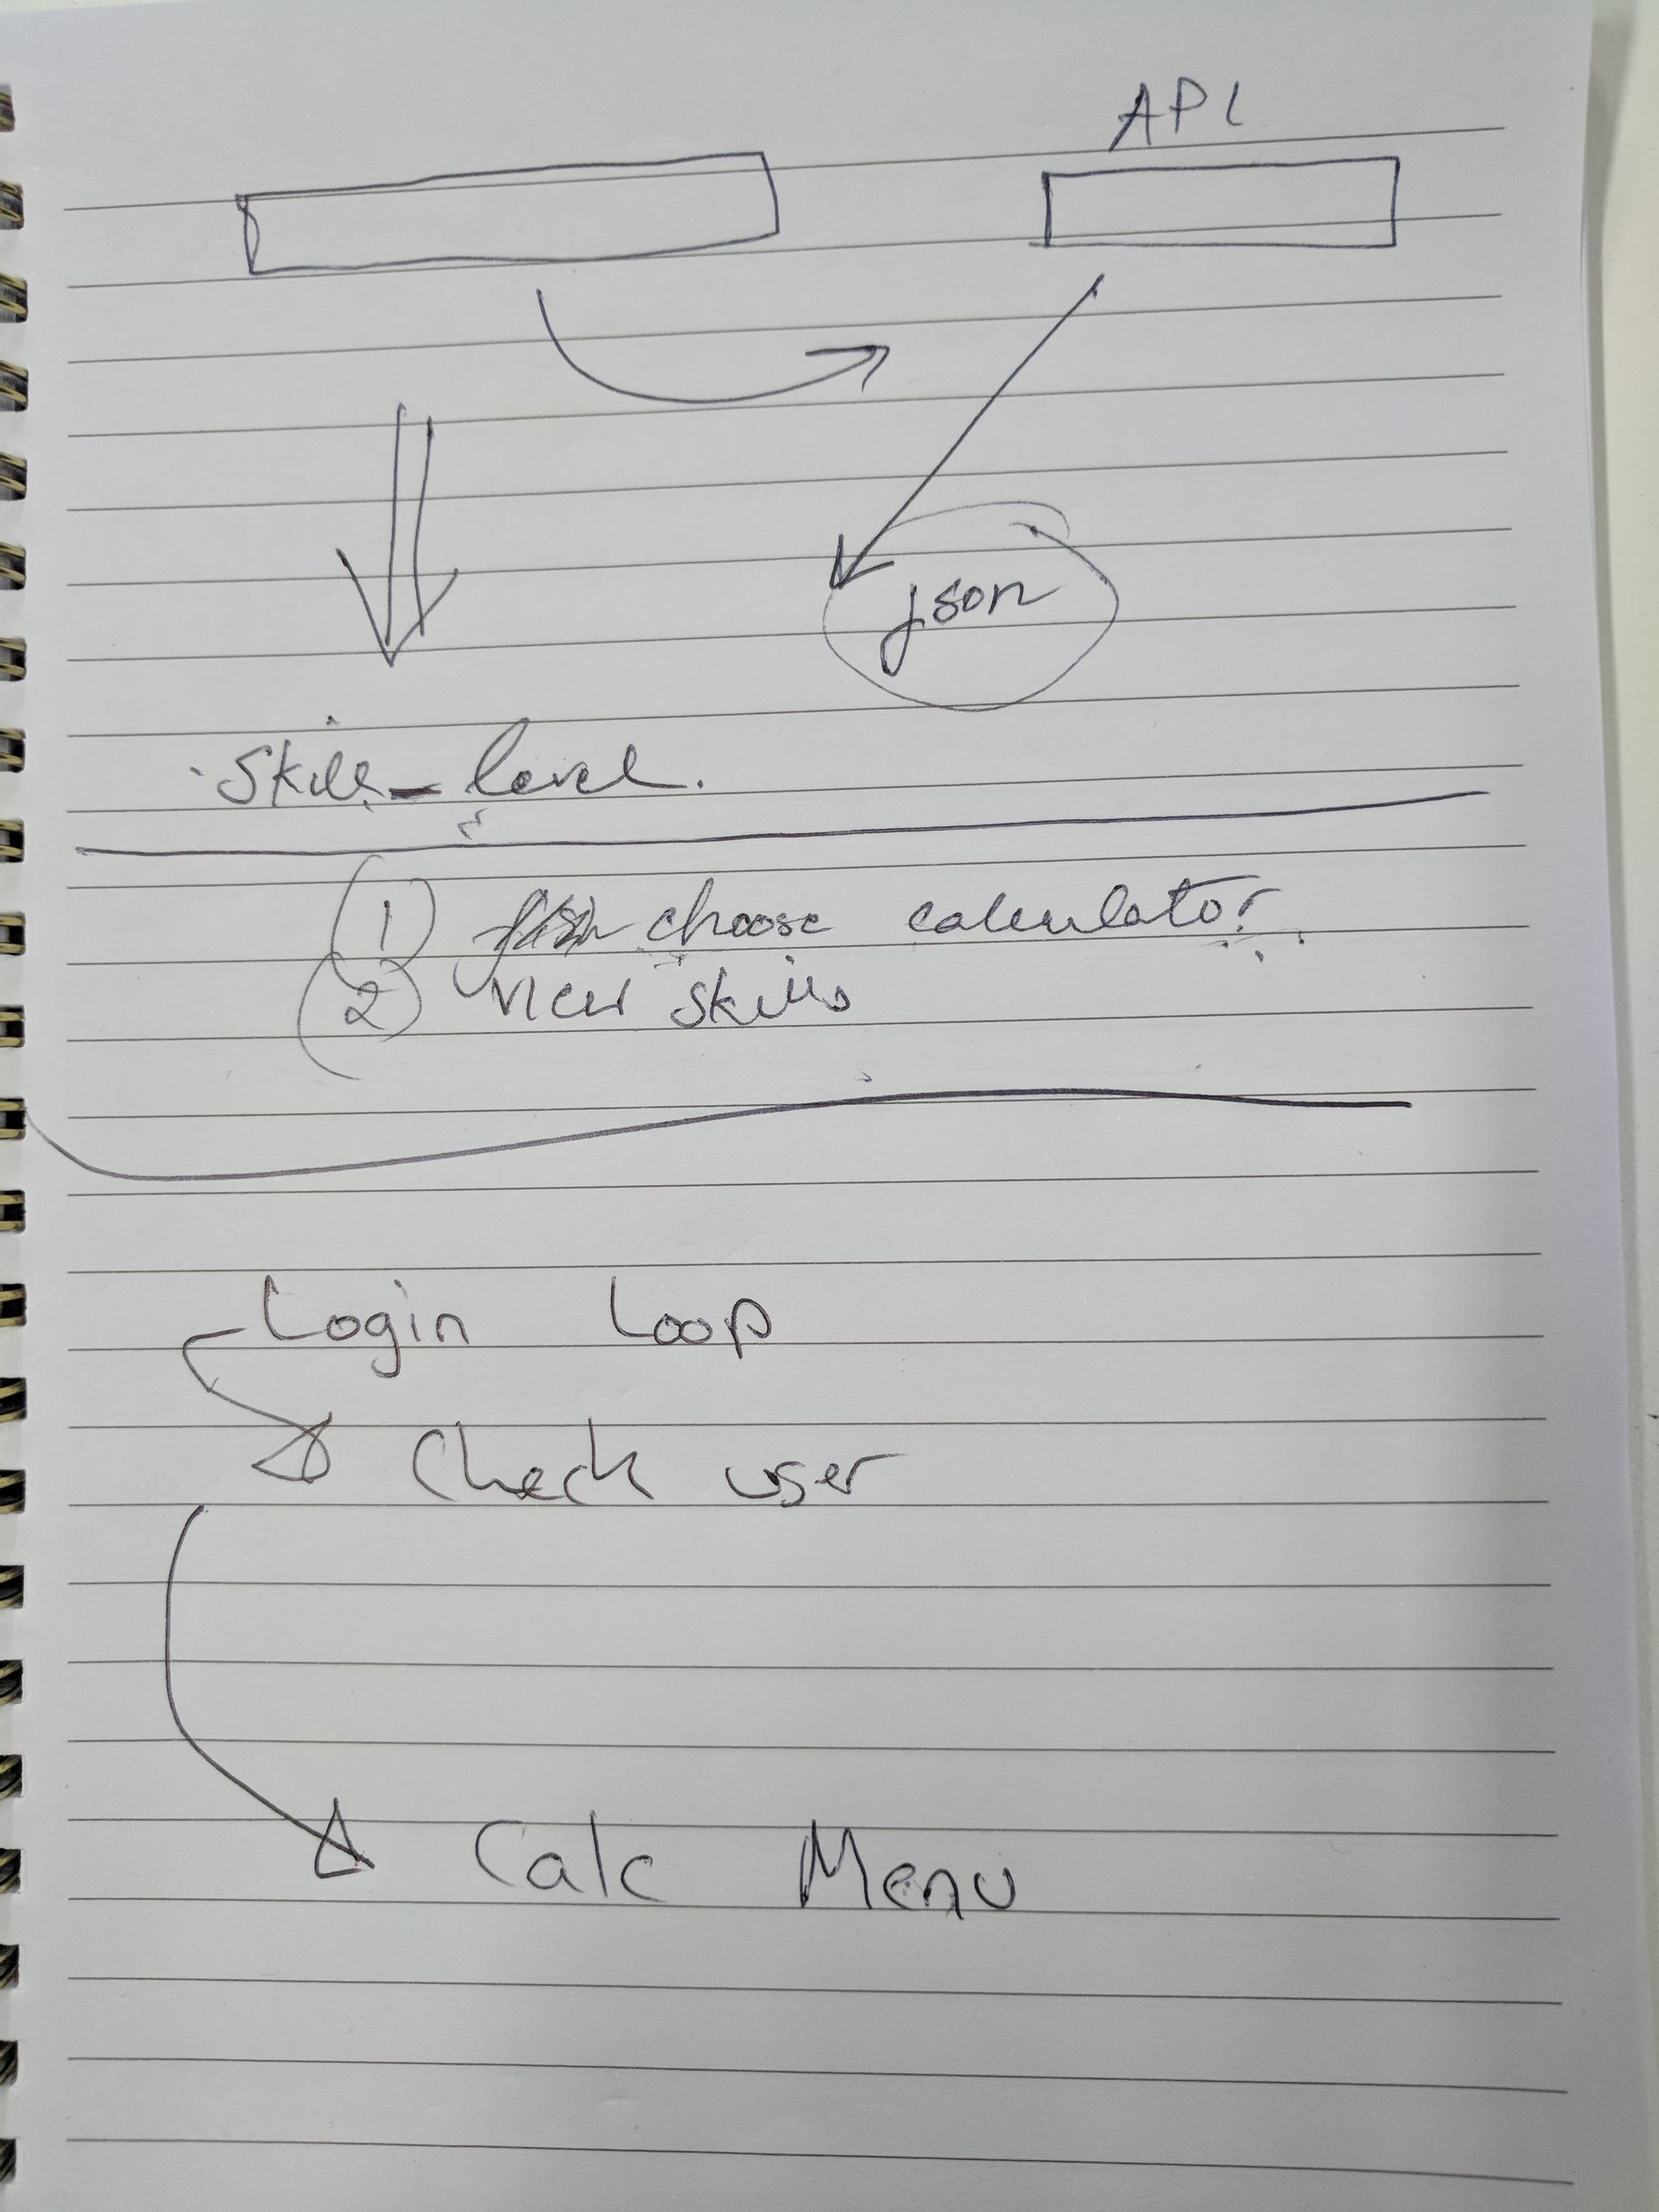 API
json
Skill_level.
1 choose calculator
2 view skills
Login Loop
Check user
Calc Menu